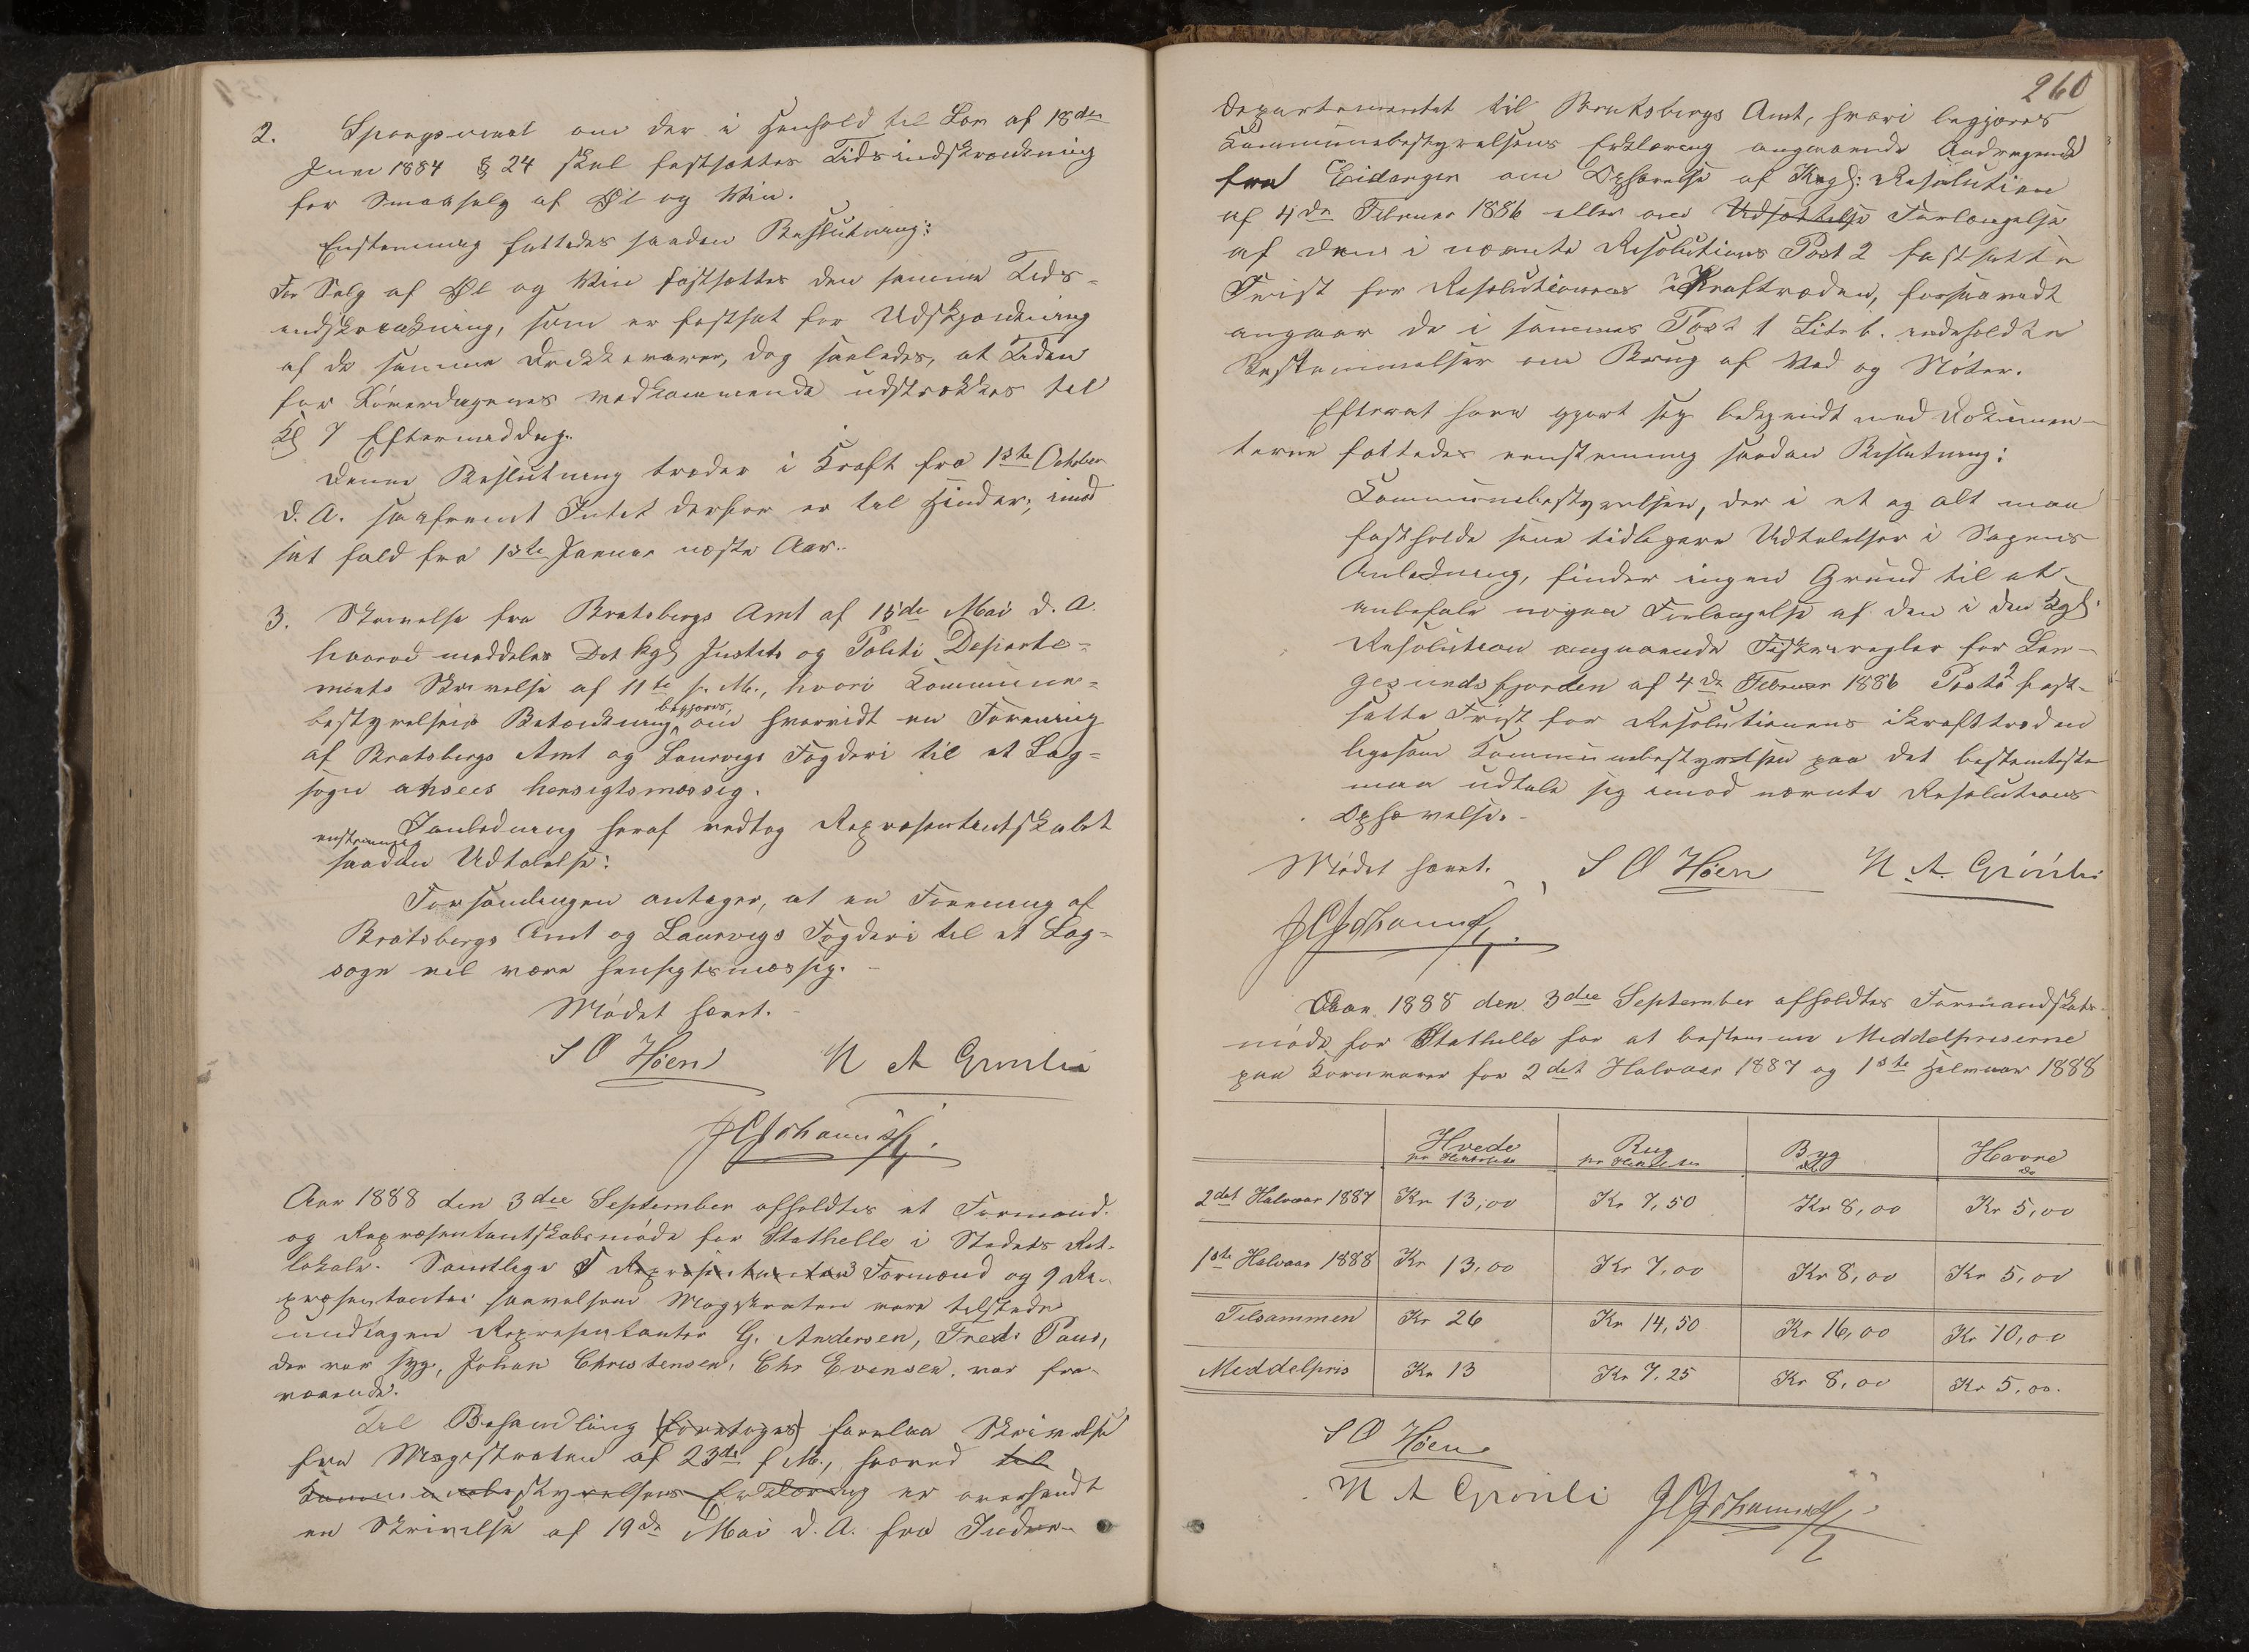 2. Spørgsmaal om der i Henhold til Lov af 18de
Juni 1884 § 24 skal fastsættes Tidsindskrænkning
for Smaasalg af Øl og Vin.
Enstemmig fattedes saadan Beslutning:
For Salg af Øl og Vin fastsættes den samme Tids-
indskrænkning, som er fastsat for Udskjænkning
af de samme Drikkevarer, dog saaledes, at Tiden
for Löverdagenes vedkommende udstrækkes til
Kl 7 Eftermiddag.
Denne Beslutning træder i Kraft fra 1ste October
d. A. saafremt Intet derfor er til Hinder, imod-
sat fald fra 1ste Januar næste Aar.
3. Skrivelse fra Bratsbergs Amt af 15de Mai d. A.
hvorved meddeles Det kgl Justits og Politi Departe-
ments Skrivelse af 11te s. M., hvori Kommune-
bestyrelsens Betænkning begjæres, om hvorvidt en Forening
af Bratsbergs Amt og Laurvigs Fogderi til et Lag-
sogn ansees hensigtsmæssig.
I anledning heraf vedtog Repræsentantskabet
enstemmig
saadan Udtalelse:
Forsamlingen antager, at en Forening af
Bratsbergs Amt og Laurvigs Fogderi til et Lag-
sogn vil være hensigtsmæssig.
Mödet hævet.
S O Høen N A Grönli
Aar 1888 den 3die September afholdtes et Formand-
og Repræsentantskabsmöde for Stathelle i Stedets Ret-
lokale. Samtlige Repræsentanter 3 Formænd og 9 Re-
præsentanter saavelsom Magistraten vare tilstede
undtagen Repræsentanter G. Andersen, Fred: Paus,
der var syg, Johan Christensen, Chr Evensen, var fra-
værende.
Til Behandling (foretoges) forelaa Skrivelse
fra Magistraten af 23de f. M., hvorved til
Kommunebestyrelsens Erklæring er oversendt
en Skrivelse af 19de Mai d. A. fra Indre-
260
departementet til Bratsbergs Amt, hvori begjæres
Kommunebestyrelsens Erklæring angaaende Andragende
fra Eidanger om Ophævelse af Kngl: Resolution
af 4de Februar 1886 eller om Udsættelse Forlængelse
af den i nævnte Resolutions Post 2 fastsatte
Frist for Resolutionens iKrafttræden, forsaavidt
angaar de i sammes Post 1 Lit b. indeholdte
Bestemmelser om Brug af Vad og Nöter.
Efterat have gjort sig bekjendt med Dokumen-
terne fattedes enstemmig saadan Beslutning:
Kommunebestyrelsen, der i et og alt maa
fastholde sine tidligere Udtalelser i Sagens
Anledning, finder ingen Grund til at
anbefale nogen Forlængelse af den i den kgl.
Resolution angaaende Fiskeregler for Lan-
gesundsfjorden af 4de Februar 1886 Post 2 fast-
satte Frist for Resolutionens ikrafttræden
ligesom Kommunebestyrelsen paa det bestemteste
maa udtale sig imod nævnte Resolutions
Ophævelse.
Mödet hævet. S O Høen N A Grönli
Aar 1888 den 3die September afholdtes Formandskabs-
möde for Stathelle for at bestemme Middelpriserne
paa Kornvarer for 2det Halvaar 1887 og 1ste Halvaar 1888
Hvede pr Hektoliter Rug pr Hektoliter Byg do Havre do
2det Halvaar 1887 Kr 13,00 Kr 7,50 Kr 8,00 Kr 5,00
1ste Halvaar 1888 Kr 13,00 Kr 7,00 Kr 8,00 Kr 5,00
Tilsammen Kr 26 Kr 14,50 Kr 16,00 Kr 10,00
Middelpris Kr 13 Kr 7,25 Kr 8,00 Kr 5,00.
S O Høen
N A Grönli